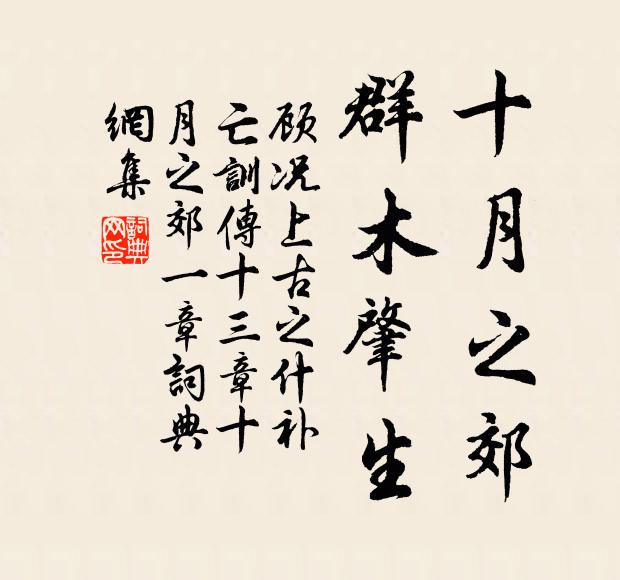 十月之郊
群木肇生
顾况上古之什补
亡訓傳十三章十
月之郊一章詞典
網集
詞典
网印